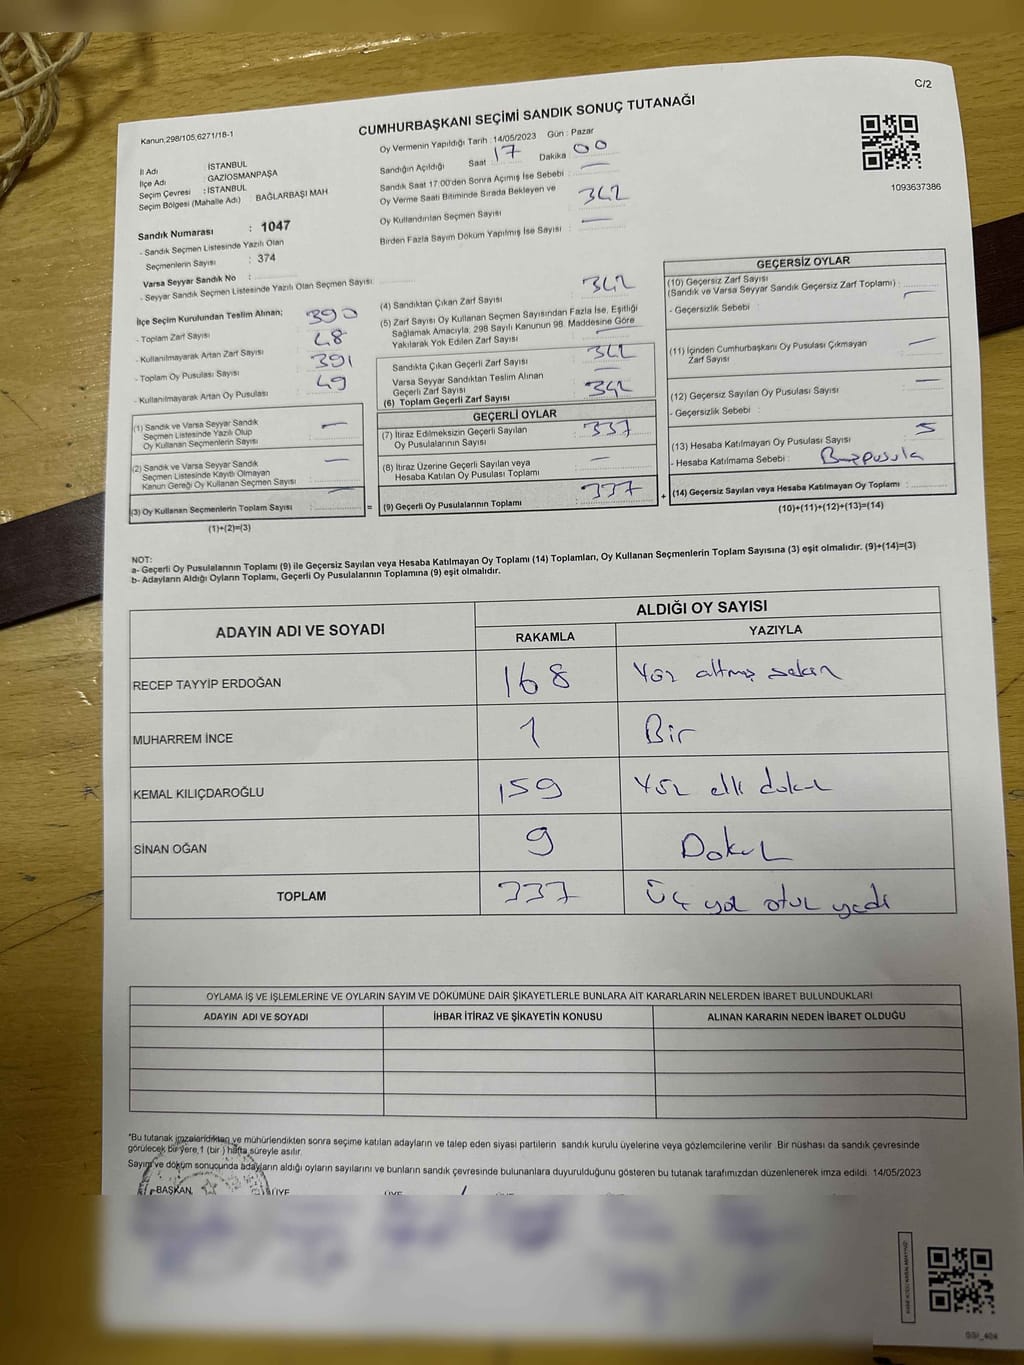 C/2
Kanun.298/105,6271/18-1
CUMHURBAŞKANI SEÇİMİ SANDIK SONUÇ TUTANAĞI
1093637386
İl Adı : İSTANBUL
İlçe Adı : GAZİOSMANPAŞA
Seçim Çevresi : İSTANBUL
Seçim Bölgesi (Mahalle Adı) BAĞLARBAŞI MAH
Sandık Numarası : 1047
- Sandık Seçmen Listesinde Yazılı Olan
Seçmenlerin Sayısı : 374
Varsa Seyyar Sandık No :
- Seyyar Sandık Seçmen Listesinde Yazılı Olan Seçmen Sayısı:
Oy Vermenin Yapıldığı Tarih : 14/05/2023 Gün : Pazar
Sandığın Açıldığı Saat 17 Dakika 00
Sandık Saat 17:00'den Sonra Açımış İse Sebebi : —
Oy Verme Saati Bitiminde Sırada Bekleyen ve
Oy Kullandırılan Seçmen Sayısı : 342
Birden Fazla Sayım Döküm Yapılmış İse Sayısı : —
İlçe Seçim Kurulundan Teslim Alınan;
- Toplam Zarf Sayısı 390
- Kullanılmayarak Artan Zarf Sayısı 48
- Toplam Oy Pusulası Sayısı 391
- Kullanılmayarak Artan Oy Pusulası 49
(1) Sandık ve Varsa Seyyar Sandık
Seçmen Listesinde Yazılı Olup
Oy Kullanan Seçmenlerin Sayısı : —
(2) Sandık ve Varsa Seyyar Sandık
Seçmen Listesinde Kayıtlı Olmayan
Kanun Gereği Oy Kullanan Seçmen Sayısı : —
(3) Oy Kullanan Seçmenlerin Toplam Sayısı : —
(1)+(2)=(3)
(4) Sandıktan Çıkan Zarf Sayısı : 342
(5) Zarf Sayısı Oy Kullanan Seçmen Sayısından Fazla İse, Eşitliği
Sağlamak Amacıyla, 298 Sayılı Kanunun 98. Maddesine Göre
Yakılarak Yok Edilen Zarf Sayısı : —
Sandıkta Çıkan Geçerli Zarf Sayısı : 342
Varsa Seyyar Sandıktan Teslim Alınan
Geçerli Zarf Sayısı : —
(6) Toplam Geçerli Zarf Sayısı : 342
GEÇERLİ OYLAR
(7) İtiraz Edilmeksizin Geçerli Sayılan
Oy Pusulalarının Sayısı : 337
(8) İtiraz Üzerine Geçerli Sayılan veya
Hesaba Katılan Oy Pusulası Toplamı : —
= (9) Geçerli Oy Pusulalarının Toplamı : 337 +
GEÇERSİZ OYLAR
(10) Geçersiz Zarf Sayısı
(Sandık ve Varsa Seyyar Sandık Geçersiz Zarf Toplamı) : —
- Geçersizlik Sebebi :
(11) İçinden Cumhurbaşkanı Oy Pusulası Çıkmayan
Zarf Sayısı : —
(12) Geçersiz Sayılan Oy Pusulası Sayısı : —
- Geçersizlik Sebebi :
(13) Hesaba Katılmayan Oy Pusulası Sayısı : 5
- Hesaba Katılmama Sebebi :
(14) Geçersiz Sayılan veya Hesaba Katılmayan Oy Toplamı :
(10)+(11)+(12)+(13)=(14)
NOT:
a- Geçerli Oy Pusulalarının Toplamı (9) ile Geçersiz Sayılan veya Hesaba Katılmayan Oy Toplamı (14) Toplamları, Oy Kullanan Seçmenlerin Toplam Sayısına (3) eşit olmalıdır. (9)+(14)=(3)
b- Adayların Aldığı Oyların Toplamı, Geçerli Oy Pusulalarının Toplamına (9) eşit olmalıdır.
ADAYIN ADI VE SOYADI ALDIĞI OY SAYISI
RAKAMLA YAZIYLA
RECEP TAYYİP ERDOĞAN 168 Yüz altmış sekiz
MUHARREM İNCE 1 Bir
KEMAL KILIÇDAROĞLU 159 Yüz elli dokuz
SİNAN OĞAN 9 Dokuz
TOPLAM 337 Üç yüz otuz yedi
OYLAMA İŞ VE İŞLEMLERİNE VE OYLARIN SAYIM VE DÖKÜMÜNE DAİR ŞİKAYETLERLE BUNLARA AİT KARARLARIN NELERDEN İBARET BULUNDUKLARI
ADAYIN ADI VE SOYADI İHBAR İTİRAZ VE ŞİKAYETİN KONUSU ALINAN KARARIN NEDEN İBARET OLDUĞU
*Bu tutanak imzalandıktan ve mühürlendikten sonra seçime katılan adayların ve talep eden siyasi partilerin sandık kurulu üyelerine veya gözlemcilerine verilir. Bir nüshası da sandık çevresinde
görülecek bir yere,1 (bir ) hafta süreyle asılır.
Sayım ve döküm sonucunda adayların aldığı oyların sayılarını ve bunların sandık çevresinde bulunanlara duyurulduğunu gösteren bu tutanak tarafımızdan düzenlenerek imza edildi. 14/05/2023
BAŞKAN ÜYE ÜYE ÜYE